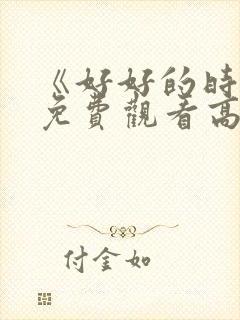 《好好的时
免費觀看高
付金如